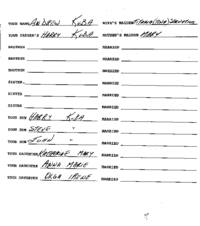 YOUR NAME ANDREW KUBA WIFE'S MAIDEN
YOUR FATHER'S HARRY KUBA MOTHER'S MAIDEN MARY
BROTHER MARRIED
BROTHER MARRIED
BROTHER MARRIED
SISTER MARRIED
SISTER MARRIED
SISTER MARRIED
YOUR SON HARRY KUBA MARRIED
YOUR SON STEVE " MARRIED
YOUR SON JOHN " MARRIED
YOUR DAUGHTER KATHERINE MARY MARRIED
YOUR DAUGHTER ANNA MARIE MARRIED
YOUR DAUGHTER OLGA IRENE MARRIED